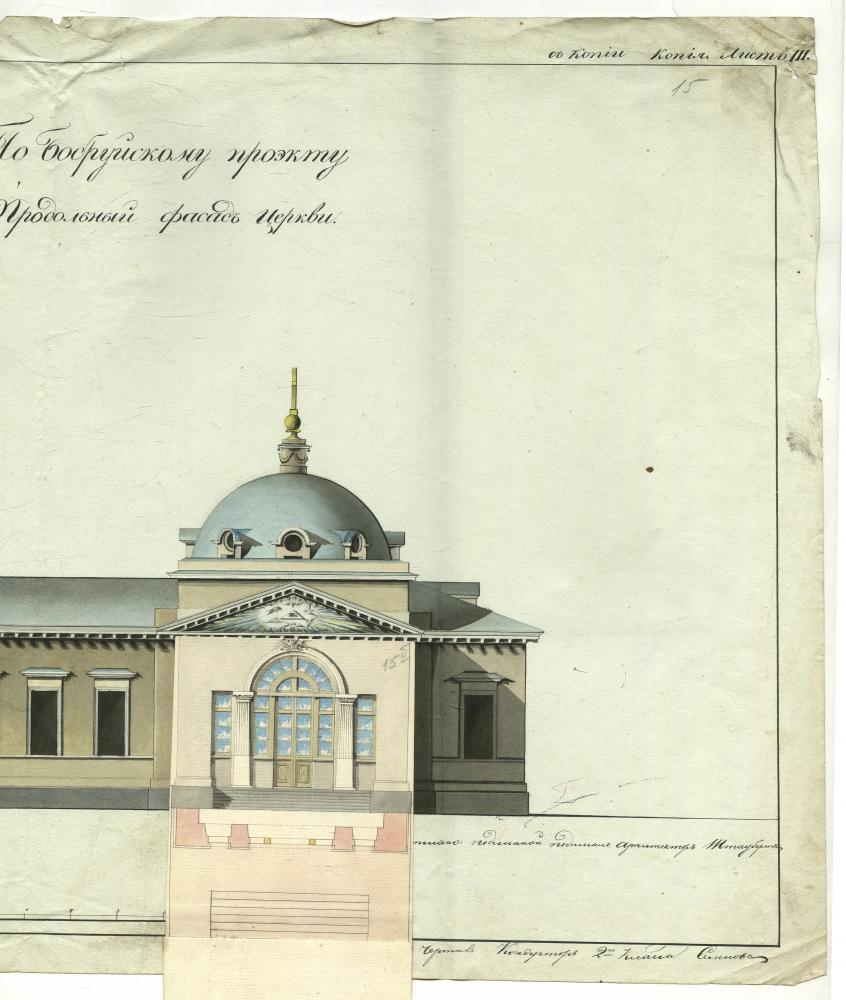 съ копіи Копія. Листъ III.
15
По Бобруйскому проэкту
Продольный фасадъ Церкви.
15
подлинной подписалъ Архитекторъ Штаубертъ
Чертилъ Кондукторъ 2го класа